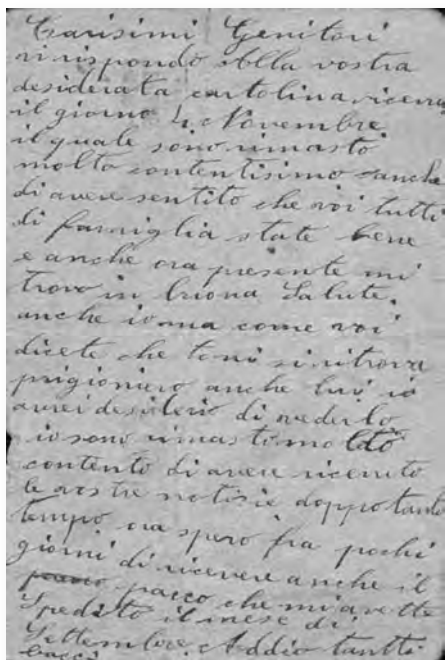 Carisimi Genitori
vi rispondo Alla vostra
desiderata cartolina riceuta
il giorno 4 Novembre
il quale sono rimasto
molto contentisimo anche
di avere sentito che voi tutti
di famiglia state bene
e anche ora presente mi
trovo in buona Salute.
anche io ma come voi
dicete che toni si ritrova
prigioniero anche lui io
avrei desiderio di vederlo
io sono rimasto molto
contento di avere riceuto
le vostre notisie doppo tanto
tempo ora spero fra pochi
giorni di ricevere anche il
pacco che mi avette
Spedito il mese di
Settembre. Addio tantti
bacci